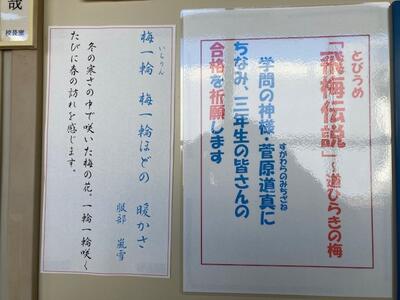 とびうめ
「飛梅伝説」～道ひらきの梅
学問の神様・菅原道真に
すがわらのみちざね
ちなみ、三年生の皆さんの
合格を祈願します
いちりん
梅一輪 梅一輪ほどの 暖かさ
服部 嵐雪
冬の寒さの中で咲いた梅の花。一輪一輪咲く
たびに春の訪れを感じます。
哉
校長室